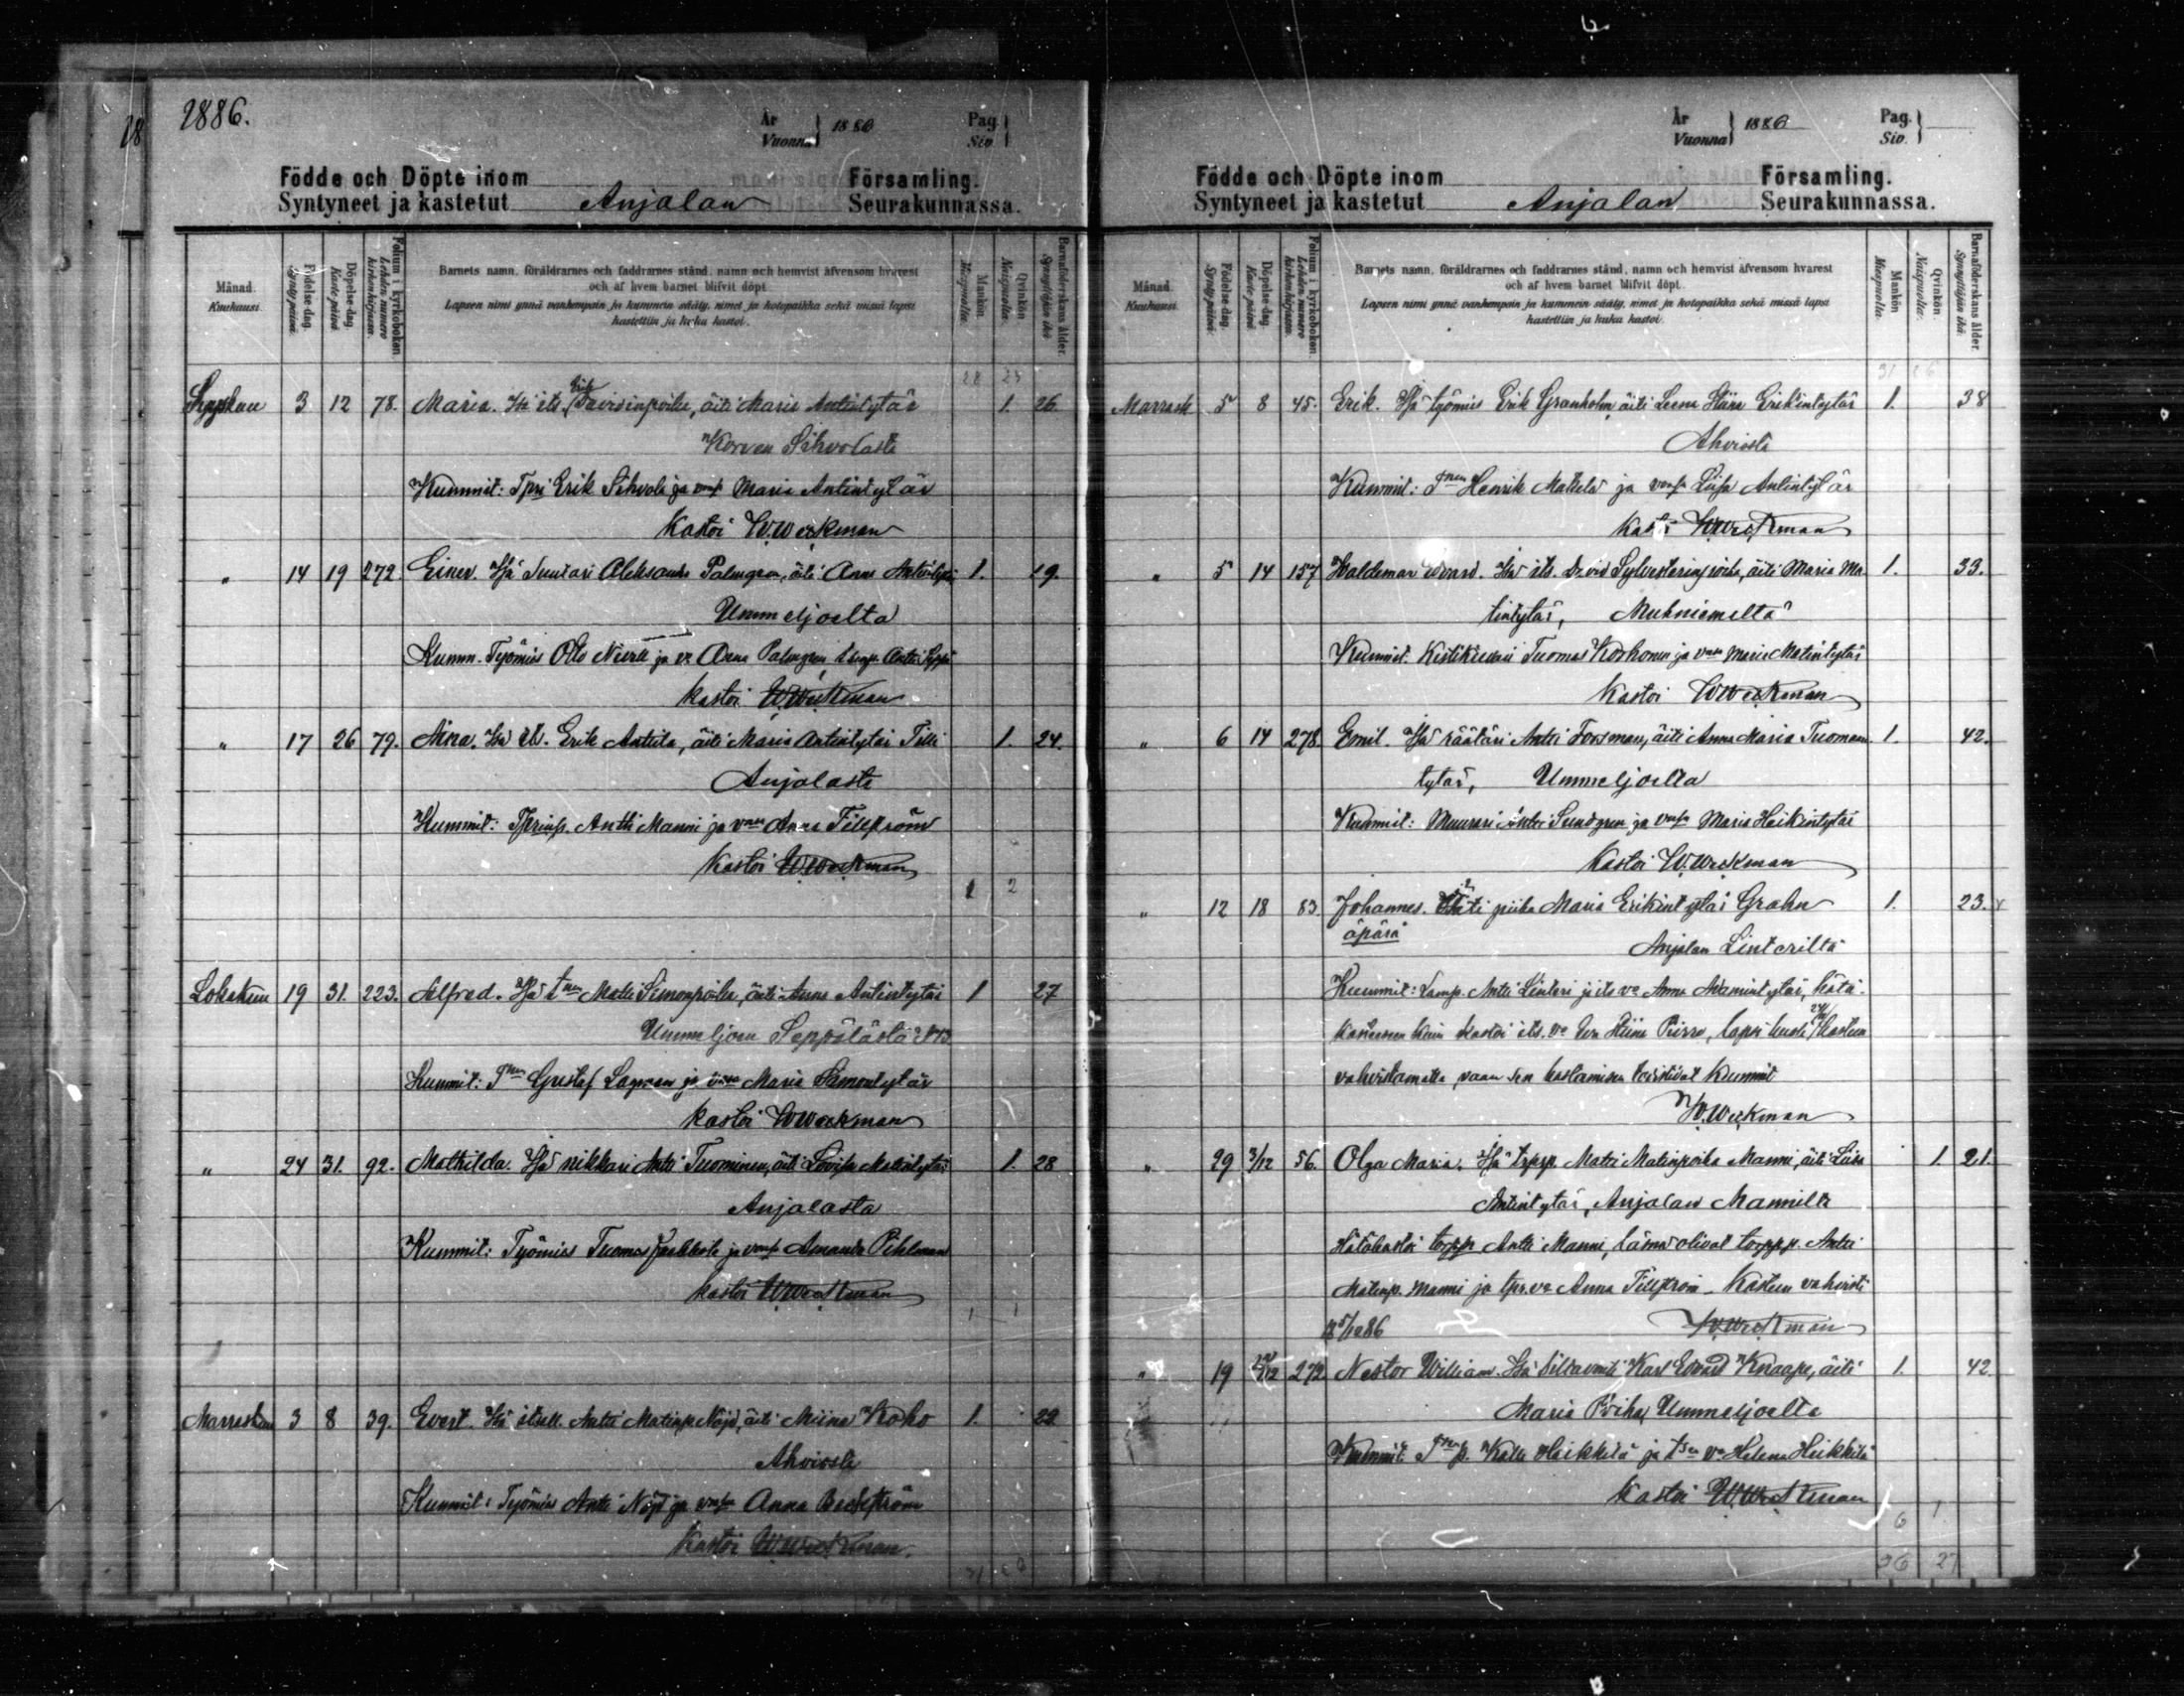 1886.
År
Vuonna } 1886
Pag.
Siv. }
Födde och Döpte inom Församling.
Syntyneet ja kastetut Anjalan Seurakunnassa.
Månad. Kuukausi.
Födelse-dag. Syntypäivä.
Döpelse-dag. Kaste-päivä.
Folium i kyrkoboken. Lehden numero kirkonkirjassa.
Barnets namn, föräldrarnes och faddrarnes stånd, namn och hemvist äfvensom hvarest
och af hvem barnet blifvit döpt.
Lapsen nimi ynnä vanhempain ja kummein sääty, nimet ja kotopaikka sekä missä lapsi
kastettiin ja kuka kastoi.
Mankön. Miespuolia.
Qvinkön. Naispuolia.
Barnaföderskans ålder. Synnyttäjän ikä.
28 25
Syyskuu 3 12 78. Maria. Isä its. Erik Davidinpoika, äiti Maria Antintytär 1. 26
Korven Sihvolasta
Kummit: Tpri Erik Sihvola ja vmsa Maria Antintytär
Kastoi W. Weckman
" 14 19 272. Einer. Isä Suutari Aleksander Palmgren, äiti Anna 1. 19.
Ummeljoelta
Kumm. Työmies Otto ja va Anna Palmgren
Kastoi W. Weckman
" 17 26 79. Aina. Isä Erik Anttila, äiti Maria Antintytär Tilli 1. 24.
Anjalasta
Kummit: Antti Manni ja vmo Anna Tillström
Kastoi W. Weckman
1 2
Lokakuu 19 31. 223. Alfred. Isä Matti Simonpoika, äiti Anna Antintytär 1 27
Ummeljoen Seppälästä
Kummit: Gustaf Lagman ja Maria Samontytär
Kastoi W Weckman
" 24 31. 92. Mathilda. Isä nikkari Antti Tuominen, äiti Lovisa Matintytär 1. 28
Anjalasta
Kummit: Työmies Tuomas ja vmsa Amanda Pihlman
Kastoi W Weckman
1 1
Marraskuu 3 8 39. Evert. Isä Antti Matinp. Nöjd, äiti Miina Koho 1. 29
Ahviosta
Kummit: Työmies Antti Nöjd ja vmsa Anna Beckström
Kastoi W. Weckman.
År
Vuonna } 1886
Pag.
Siv. }
Födde och Döpte inom Församling.
Syntyneet ja kastetut Anjalan Seurakunnassa.
Månad. Kuukausi.
Födelse-dag. Syntypäivä.
Döpelse-dag. Kaste-päivä.
Folium i kyrkoboken. Lehden numero kirkonkirjassa.
Barnets namn, föräldrarnes och faddrarnes stånd, namn och hemvist äfvensom hvarest
och af hvem barnet blifvit döpt.
Lapsen nimi ynnä vanhempain ja kummein sääty, nimet ja kotopaikka sekä missä lapsi
kastettiin ja kuka kastoi.
Mankön. Miespuolia.
Qvinkön. Naispuolia.
Barnaföderskans ålder. Synnyttäjän ikä.
31 26
Marrask 5 8 45. Erik. Isä työmies Erik Granholm, äiti Leena Stiina Erikintytär 1. 38
Ahviosta
Kummit: Henrik Mattila ja vmsa Liisa Antintytär
Kastoi W Weckman
" 5 14 157 Valdemar Edvard. Isä its. David Sylvesterinpoika, äiti Maria Ma- 1. 33.
tintytär, Muhniemeltä
Kummit: Kestikievari Tuomas Korhonen ja vmo Maria Matintytär
Kastoi W Weckman
" 6 14 278. Emil. Isä räätäri Antti Forsman, äiti Anna Maria Tuomaan- 1. 42.
tytär, Ummeljoelta
Kummit: Muurari Sundgren ja vmsa Maria Heikintytär
Kastoi W. Weckman
" 12 18 83. Johannes. Äiti piika Maria Erikintytär Grahn 1. 23.
äpärä
Anjalan Linteriltä
Kummit: Lamp. Antti Linteri ja its va Anna Adamintytär, hätä-
kasteen kuin kastoi its. va Eva Stiina Pirre, lapsi kuoli kasteen
vahvistamatta, vaan sen kastamisen todistivat Kummit
W. Weckman
" 29 3/12 56. Olga Maria. Isä Matti Matinpoika Manni, äiti Liisa 1. 21.
Antintytär, Anjalan Mannilta
Hätäkastoi torppr Antti Manni, läsnä olivat Antti
Matinp. Manni ja tpr. va Anna Tillström. Kasteen vahvisti
5/12 86 W Weckman
" 19 272 Nestor William. Isä Karl Edvard Knaapi, äiti 1. 42.
Maria Ummeljoelta
Kummit: Kalle Heikkilä ja va Helena Heikkilä
Kastoi W. Weckman
6 1